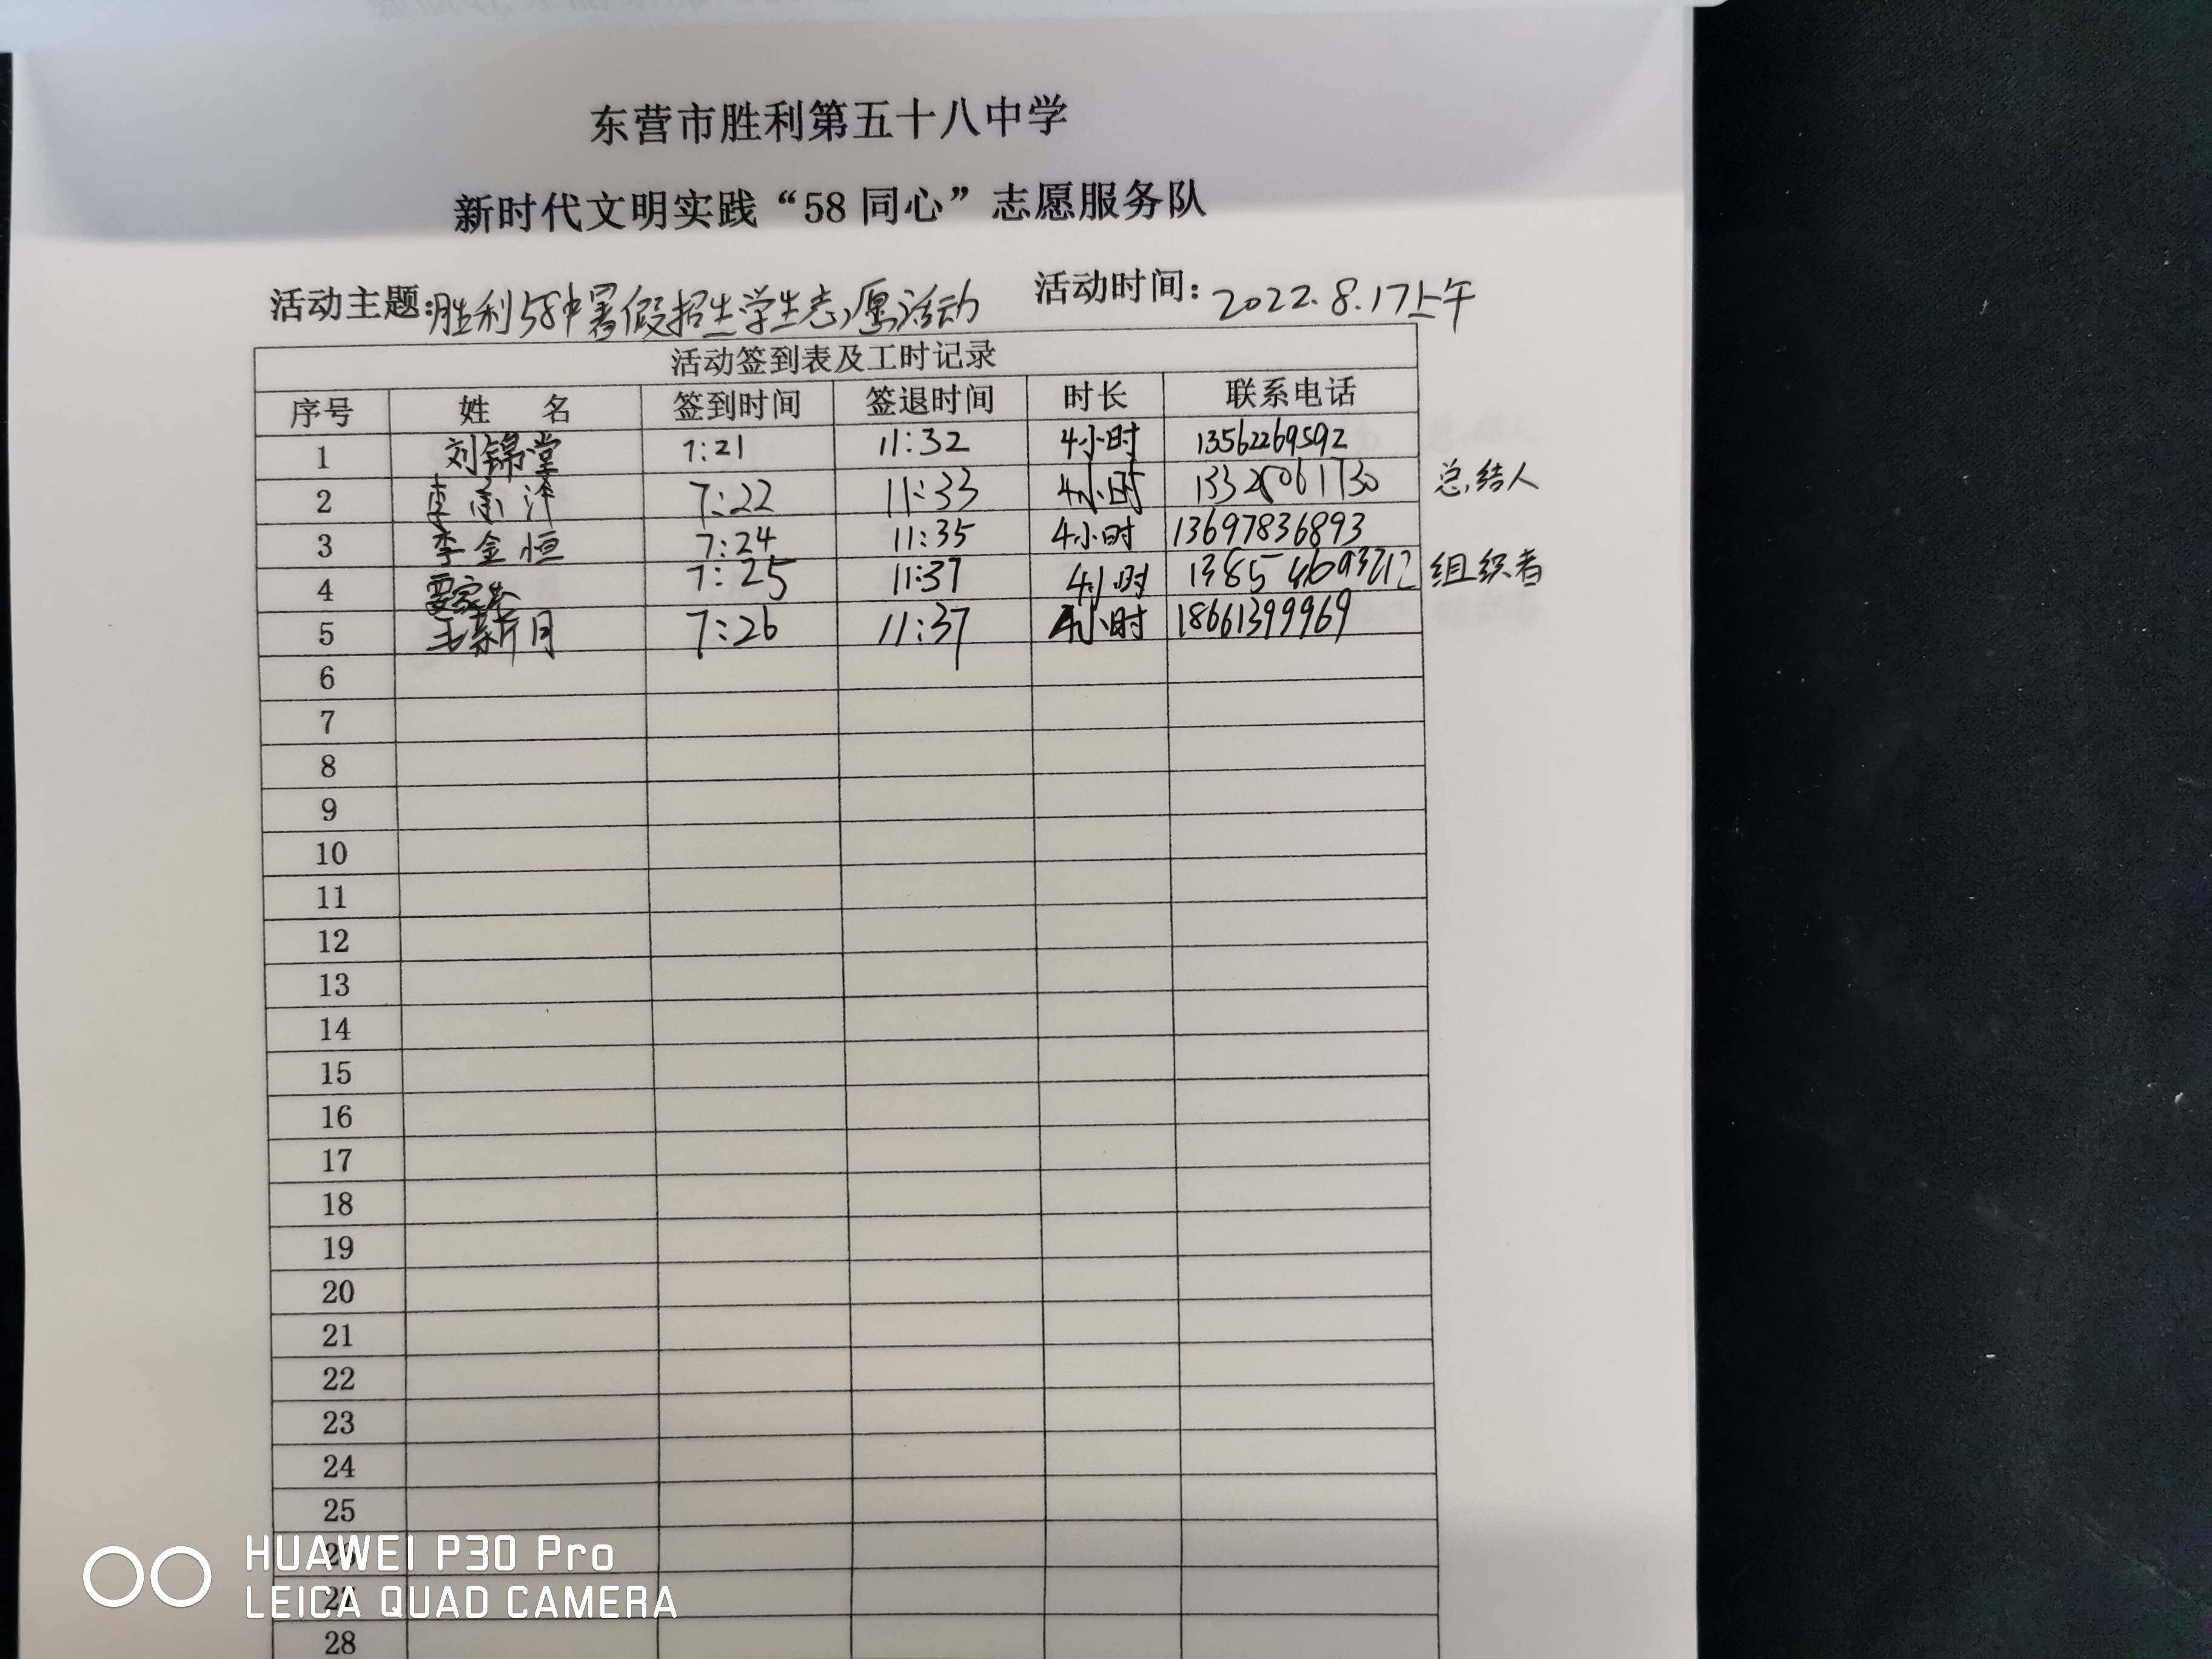 东营市胜利第五十八中学
新时代文明实践“58 同心”志愿服务队
活动主题:胜利58中暑假招生学生志愿活动 活动时间: 2022.8.17上午
活动签到表及工时记录
序号 姓 名 签到时间 签退时间 时长 联系电话
1 刘锦堂 7:21 11:32 4小时 13562269592
2 李 7:22 11:33 4小时 总结人
3 李金恒 7:24 11:35 4小时 13697836893
4 7:25 11:37 4小时 组织者
5 王新月 7:26 11:37 4小时 18661399969
6
7
8
9
10
11
12
13
14
15
16
17
18
19
20
21
22
23
24
25
26
27
28
HUAWEI P30 Pro
LEICA QUAD CAMERA